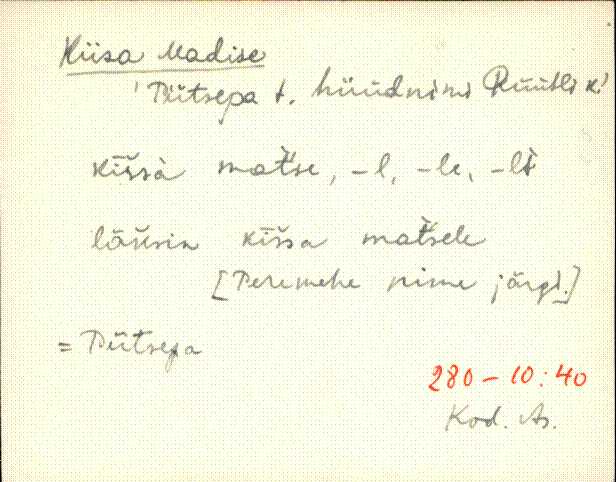 Kiisa Madise
'Pütsepa t. hüüdnimi Ruutli k.'
kiisà matse, -l, -le, -lt
läksin kiisa matsele
[Peremehe nime järgi.]
= Pütsepa
280-10:40
Kod. As.